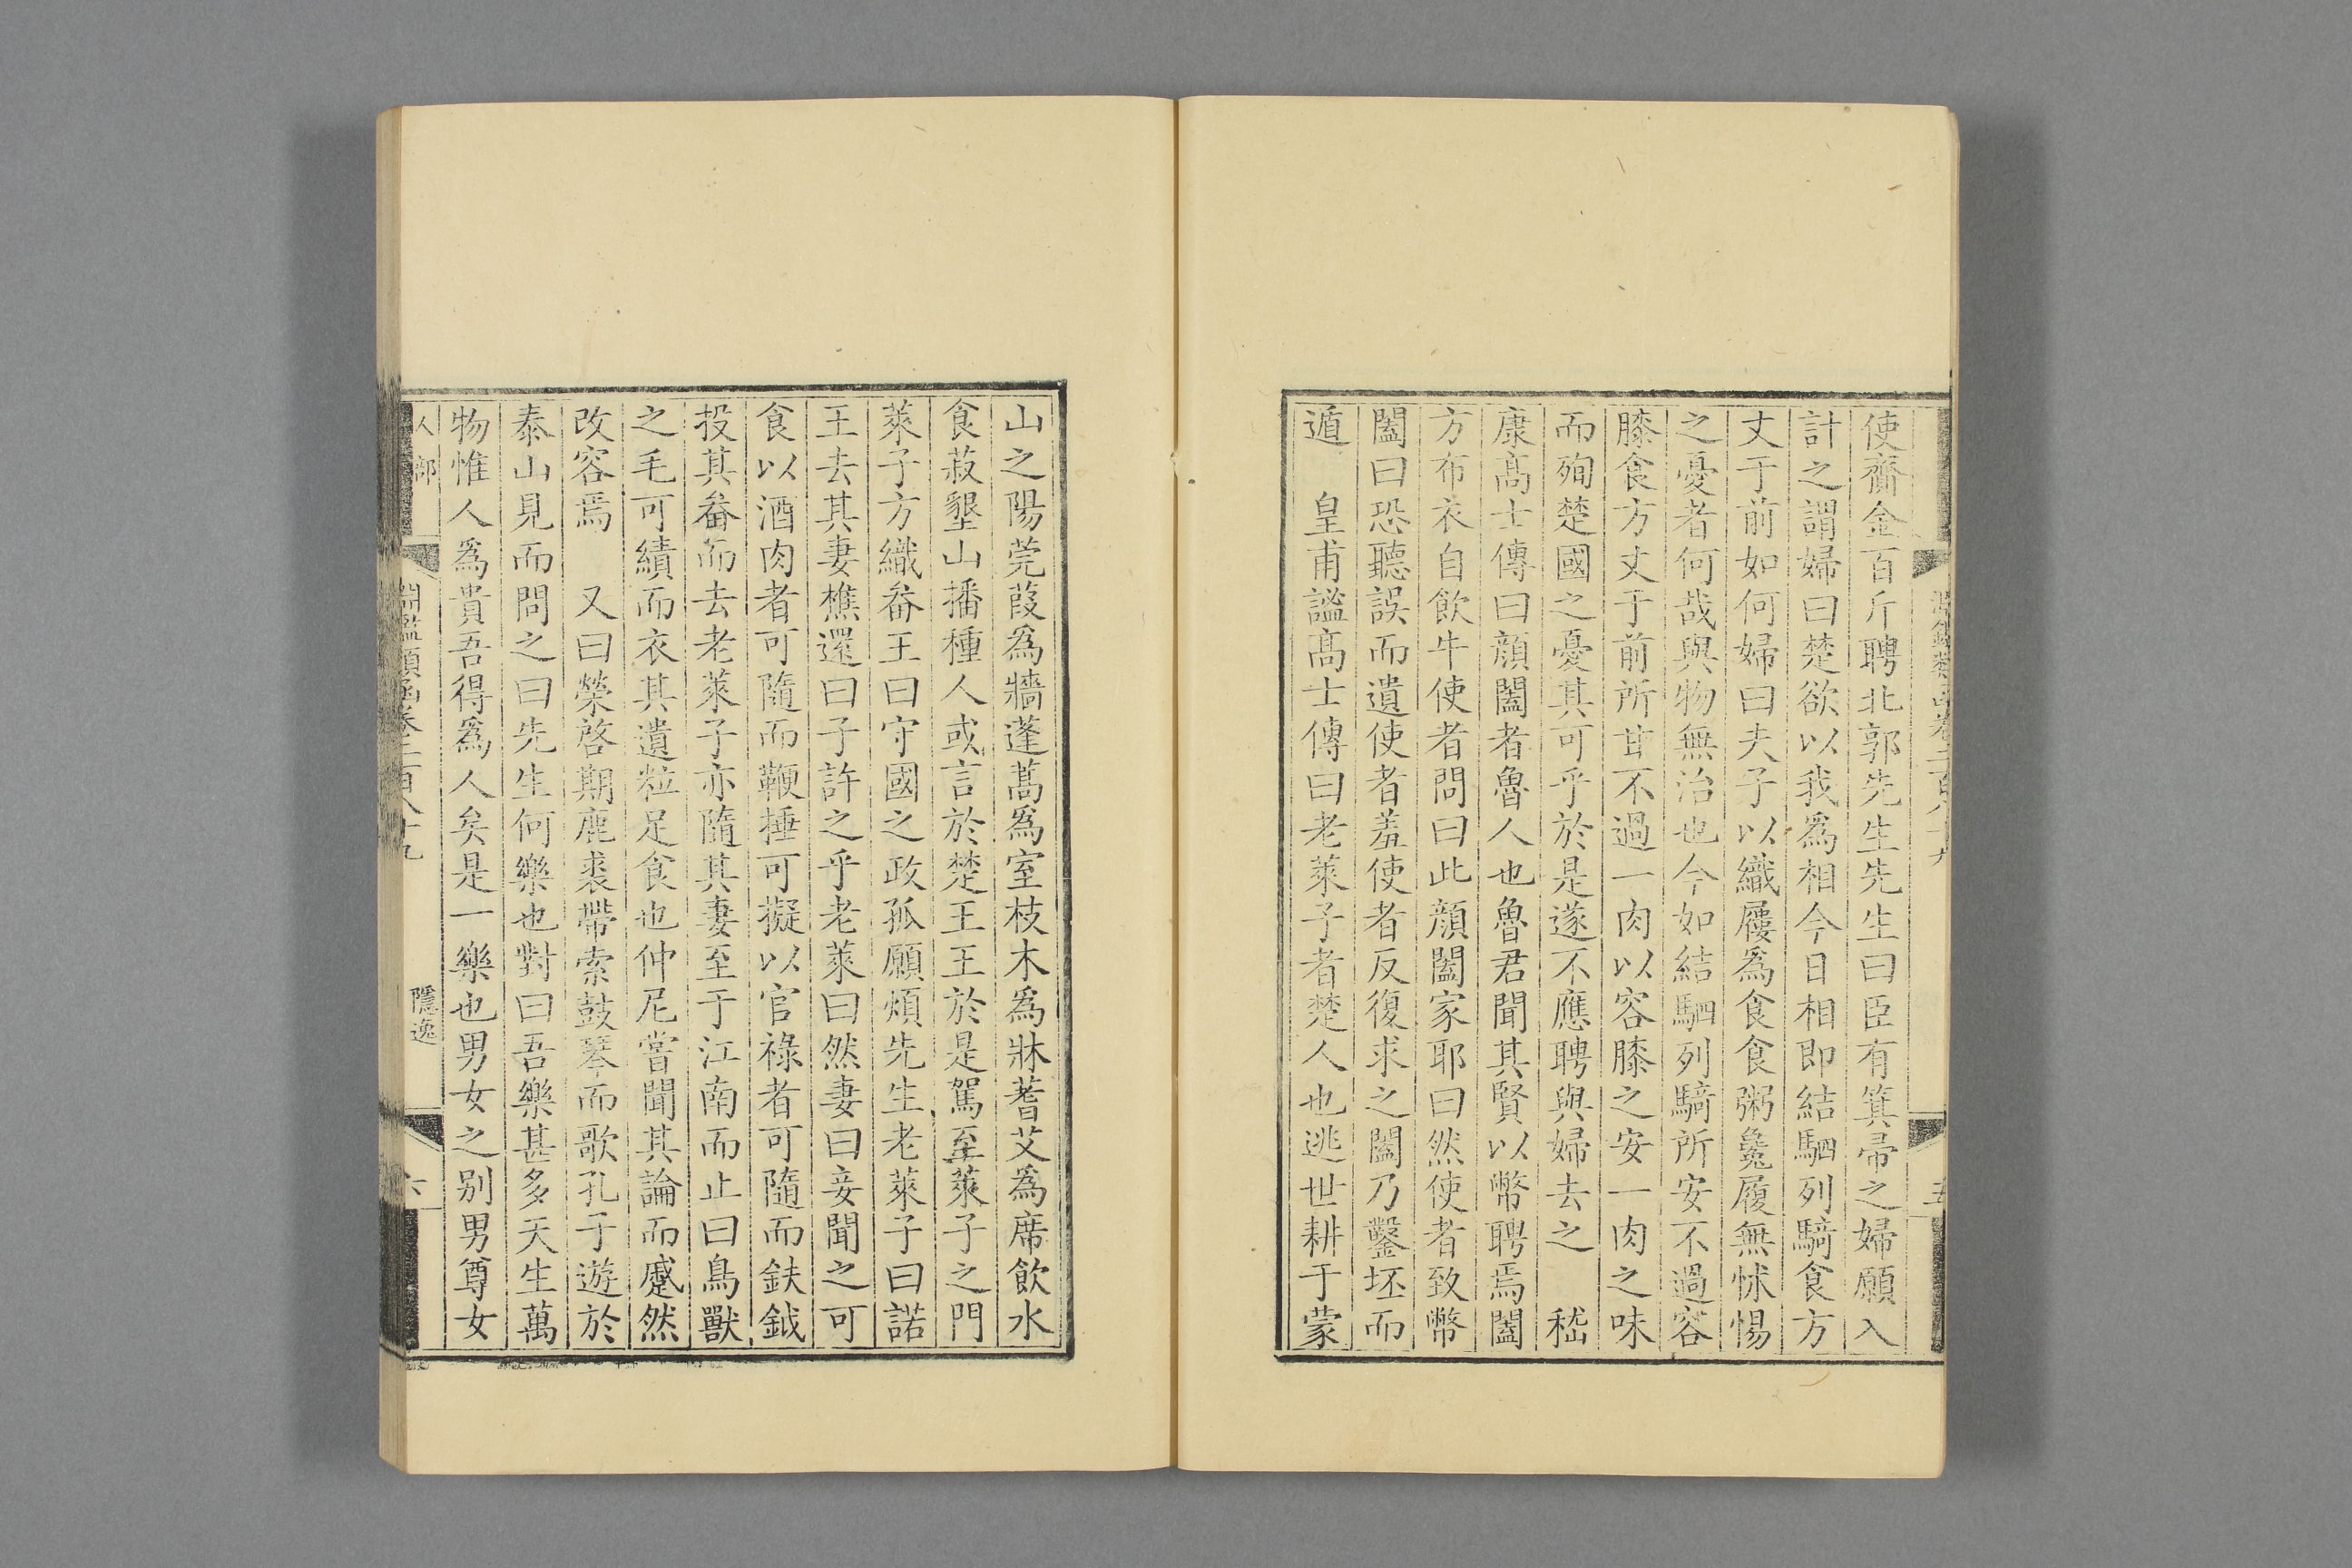 使齎金百斤聘北郭先生先生曰臣有箕帚之婦願入
計之謂婦曰楚欲以我爲相今日相即結駟列騎食方
丈于前如何婦曰夫子以織屨爲食食粥毚履無怵惕
之憂者何哉與物無治也今如結駟列騎所安不過容
膝食方丈于前所甘不過一肉以容膝之安一肉之味
而殉楚國之憂其可乎於是遂不應聘與婦去之　嵇
康髙士傳曰顔闔者魯人也魯君聞其賢以幣聘焉闔
方布衣自飲牛使者問曰此顔闔家耶曰然使者致幣
闔曰恐聽誤而遺使者羞使者反復求之闔乃鑿坯而
遁　皇甫謐髙士傳曰老萊子者楚人也逃世耕于蒙
山之陽莞葭爲牆蓬蒿爲室枝木爲牀蓍艾爲席飲水
食菽墾山播種人或言於楚王王於是駕至萊子之門
萊子方織畚王曰守國之政孤願煩先生老萊子曰諾
王去其妻樵還曰子許之乎老萊曰然妻曰妾聞之可
食以酒肉者可隨而鞭捶可擬以官祿者可隨而鈇鉞
投其畚而去老萊子亦隨其妻至于江南而止曰鳥獸
之毛可績而衣其遺粒足食也仲尼嘗聞其論而蹙然
改容焉　又曰榮啓期鹿裘帶索鼓琴而歌孔子遊於
泰山見而問之曰先生何樂也對曰吾樂甚多天生萬
物惟人爲貴吾得爲人矣是一樂也男女之别男尊女
人部　淵鑑類函卷二百八十九　隱逸　六